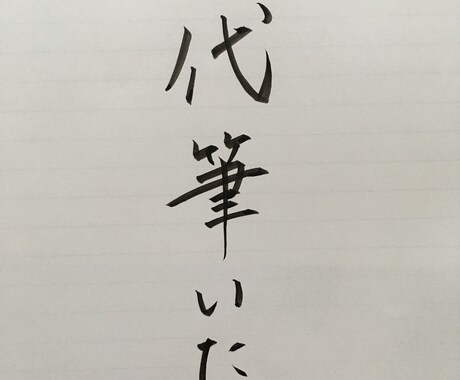 代筆いた